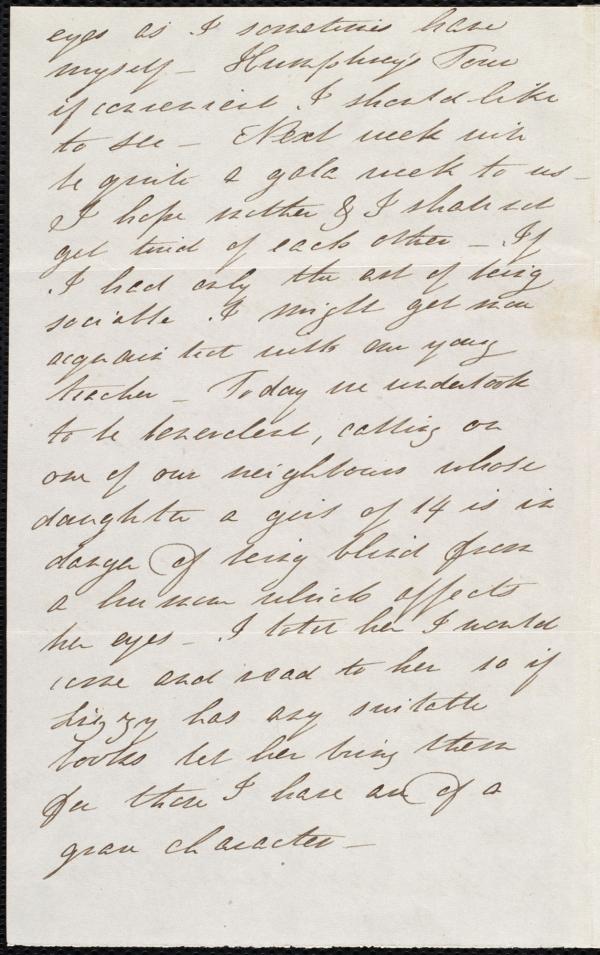 eyes as I sometimes have
myself — Humphrey's Tour
if convenient I should like
to see — Next week will
be quite a gala week to us —
I hope mother & I shall not
get tired of each other — If
I had only the art of being
sociable I might get more
acquainted with our young
teacher — Today we undertook
to be benevolent, calling on
one of our neighbours whose
daughter a girl of 14 is in
danger of being blind from
a humour which affects
her eyes — I told her I would
come and read to her so if
Lizzy has any suitable
books let her bring them
for those I have are of a
grave character —